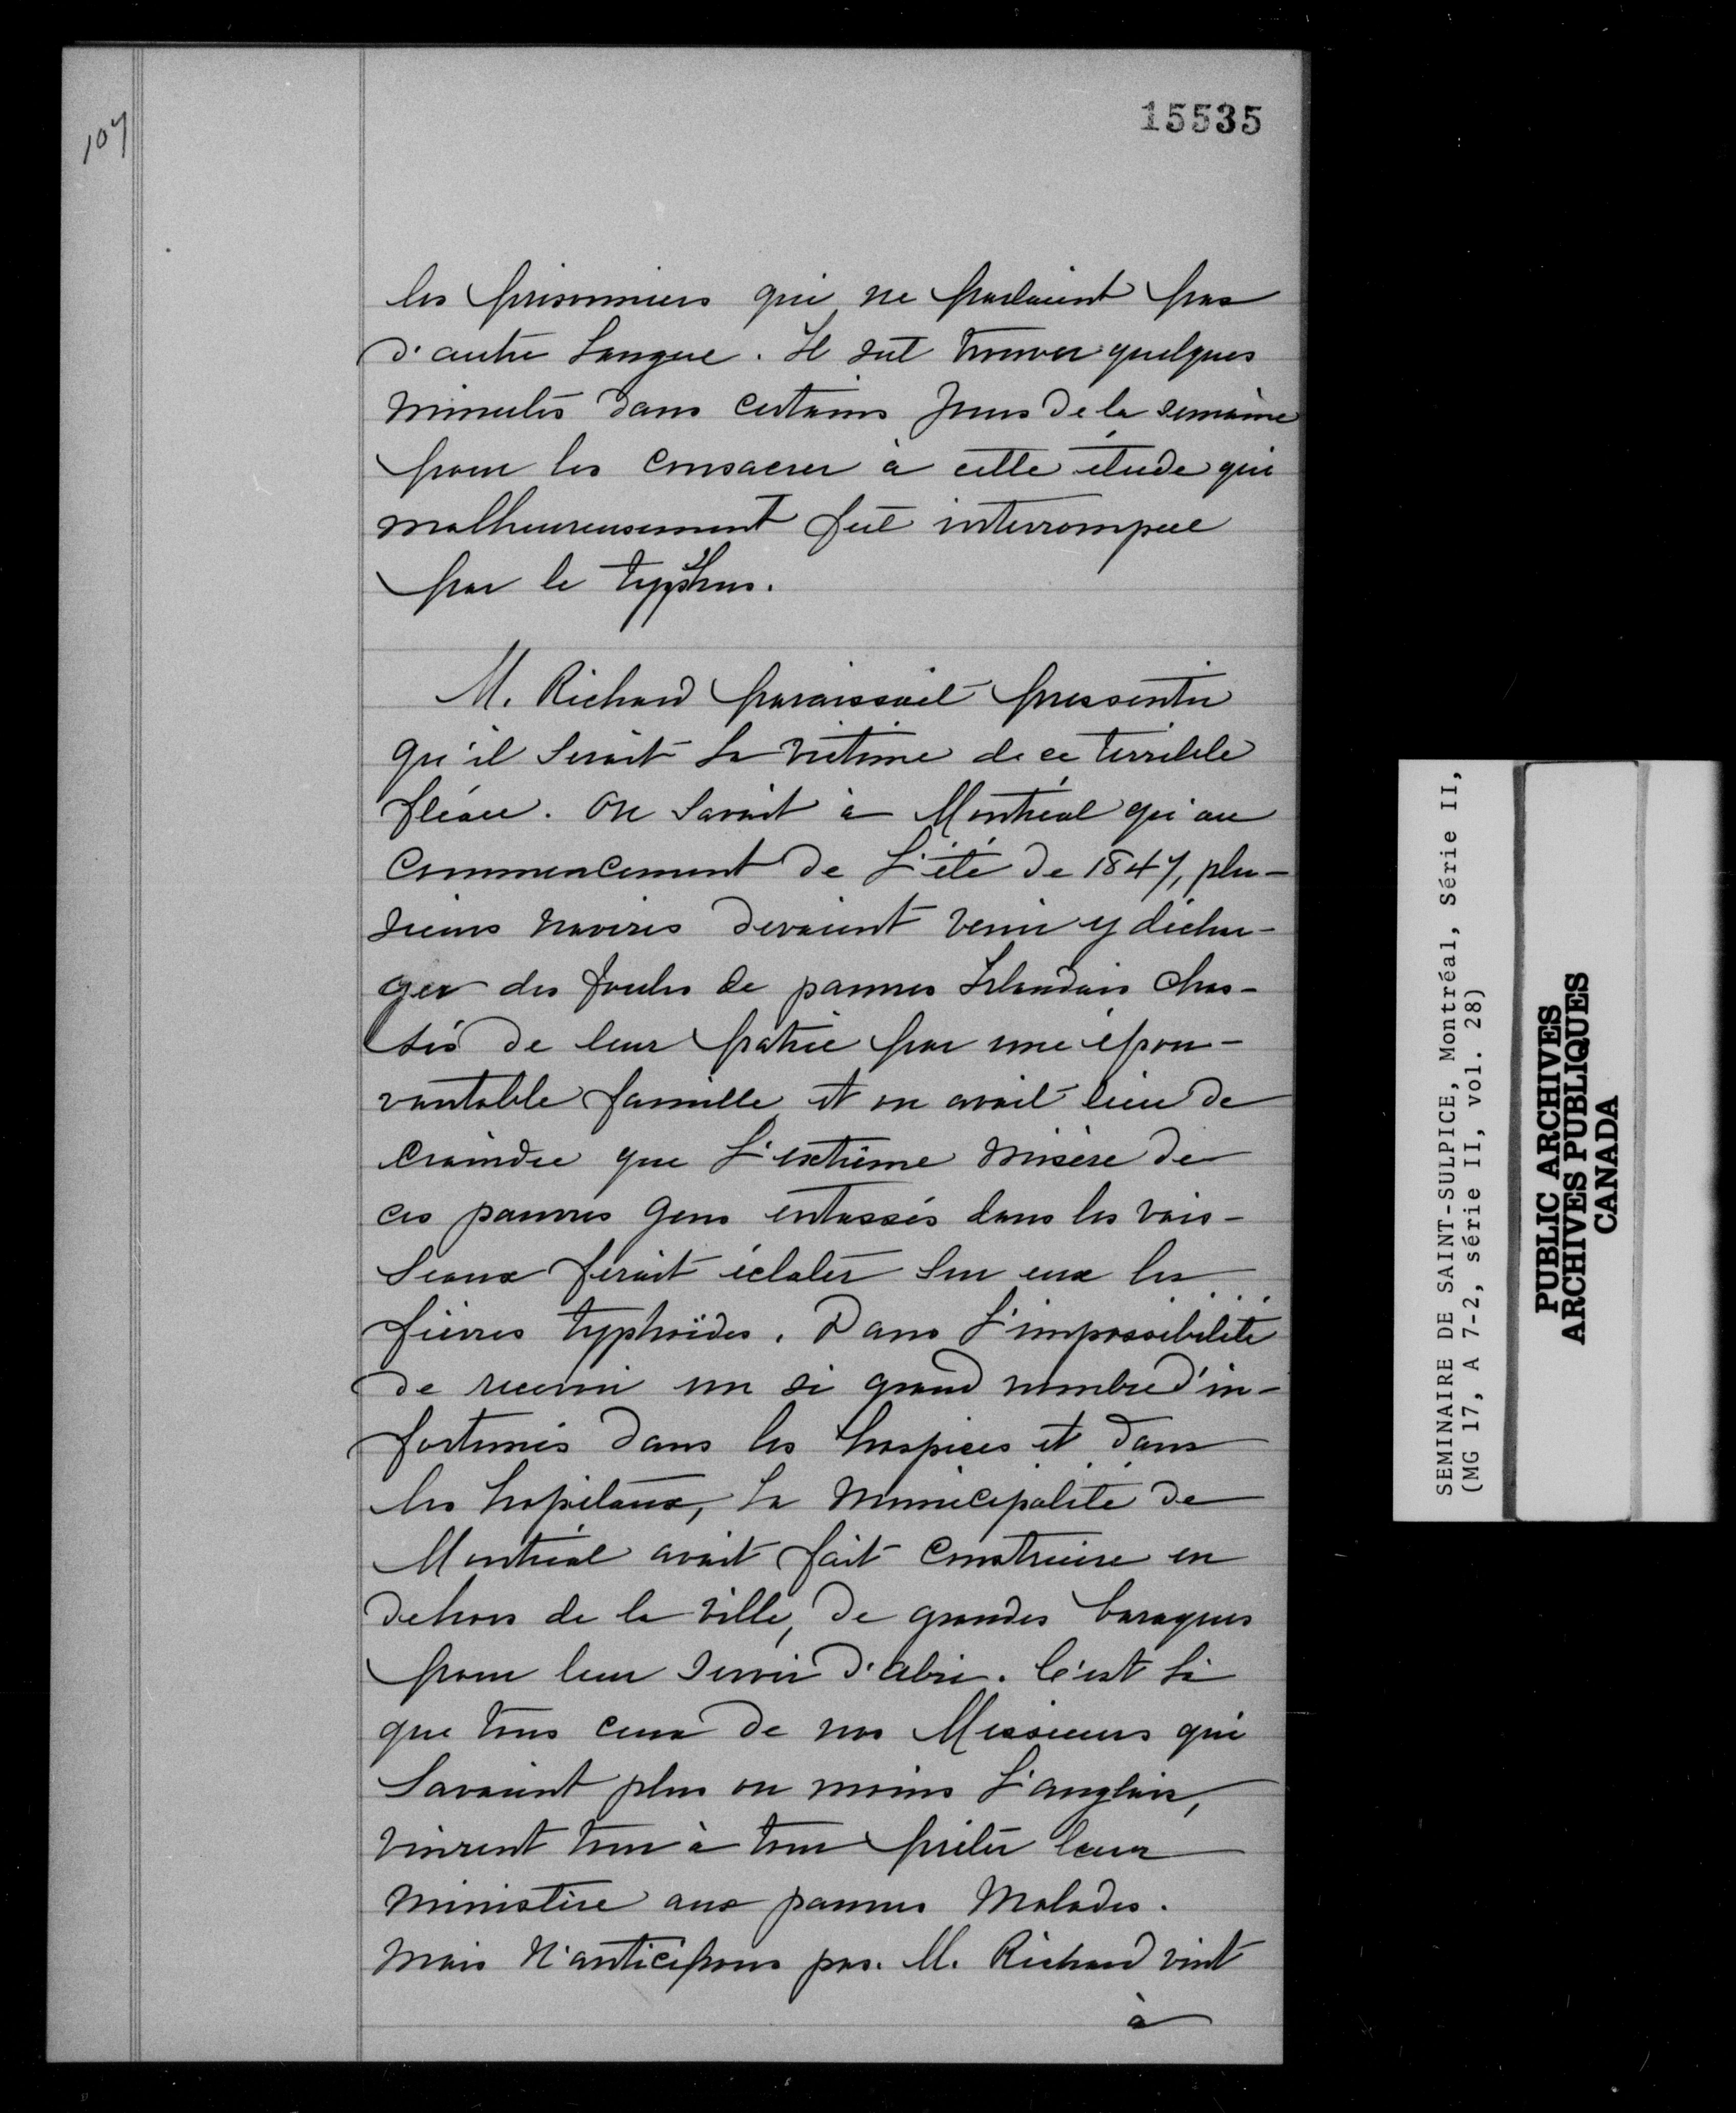 107
15535
les prisonniers qui ne parlaient pas
d'autre langue. Il sut trouver quelques
minutes dans certains jours de la semaine
pour les consacrer à cette étude qui
malheureusement fut interrompue
par le typhus.
M. Richard paraissait pressentir
qu'il serait la victime de ce terrible
fléau. On savait à Montréal qu'au
commencement de l'été de 1847, plu-
sieurs navires devaient venir y déchar-
ger des foules de pauvres Irlandais chas-
sés de leur patrie par une épou-
vantable famille et on avait lieu de
craindre que l'extrême misère de
ces pauvres gens entassés dans les vais-
seaux ferait éclater sur eux les
fièvres typhoïdes. Dans l'impossibilité
de recevoir un si grand nombre d'in-
fortunés dans les hospices et dans
les hopitaux, la municipalité de
Montréal avait fait construire en
dehors de la ville, de grandes baraques
pour leur servir d'abri. C'est là
que tous ceux de nos Messieurs qui
savaient plus ou moins l'anglais,
vinrent tour à tour prêter leur
ministère aux pauvres malades.
Mais n'anticipons pas. M. Richard vint
à
SEMINAIRE DE SAINT-SULPICE, Montréal, Série II,
(MG 17, A 7-2, série II, vol. 28)
PUBLIC ARCHIVES
ARCHIVES PUBLIQUES
CANADA